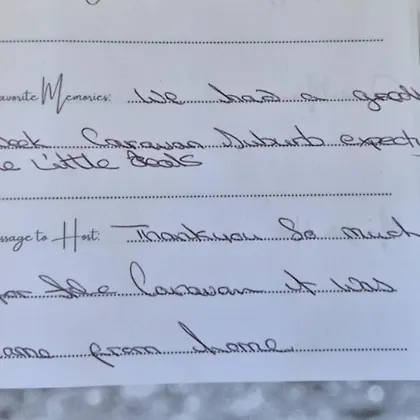 avorite Memories: We had a good
eek Caravan Suburb expect
e Little Seals
ssage to Host: Thankyou So much
or the Caravan it was
ome from home